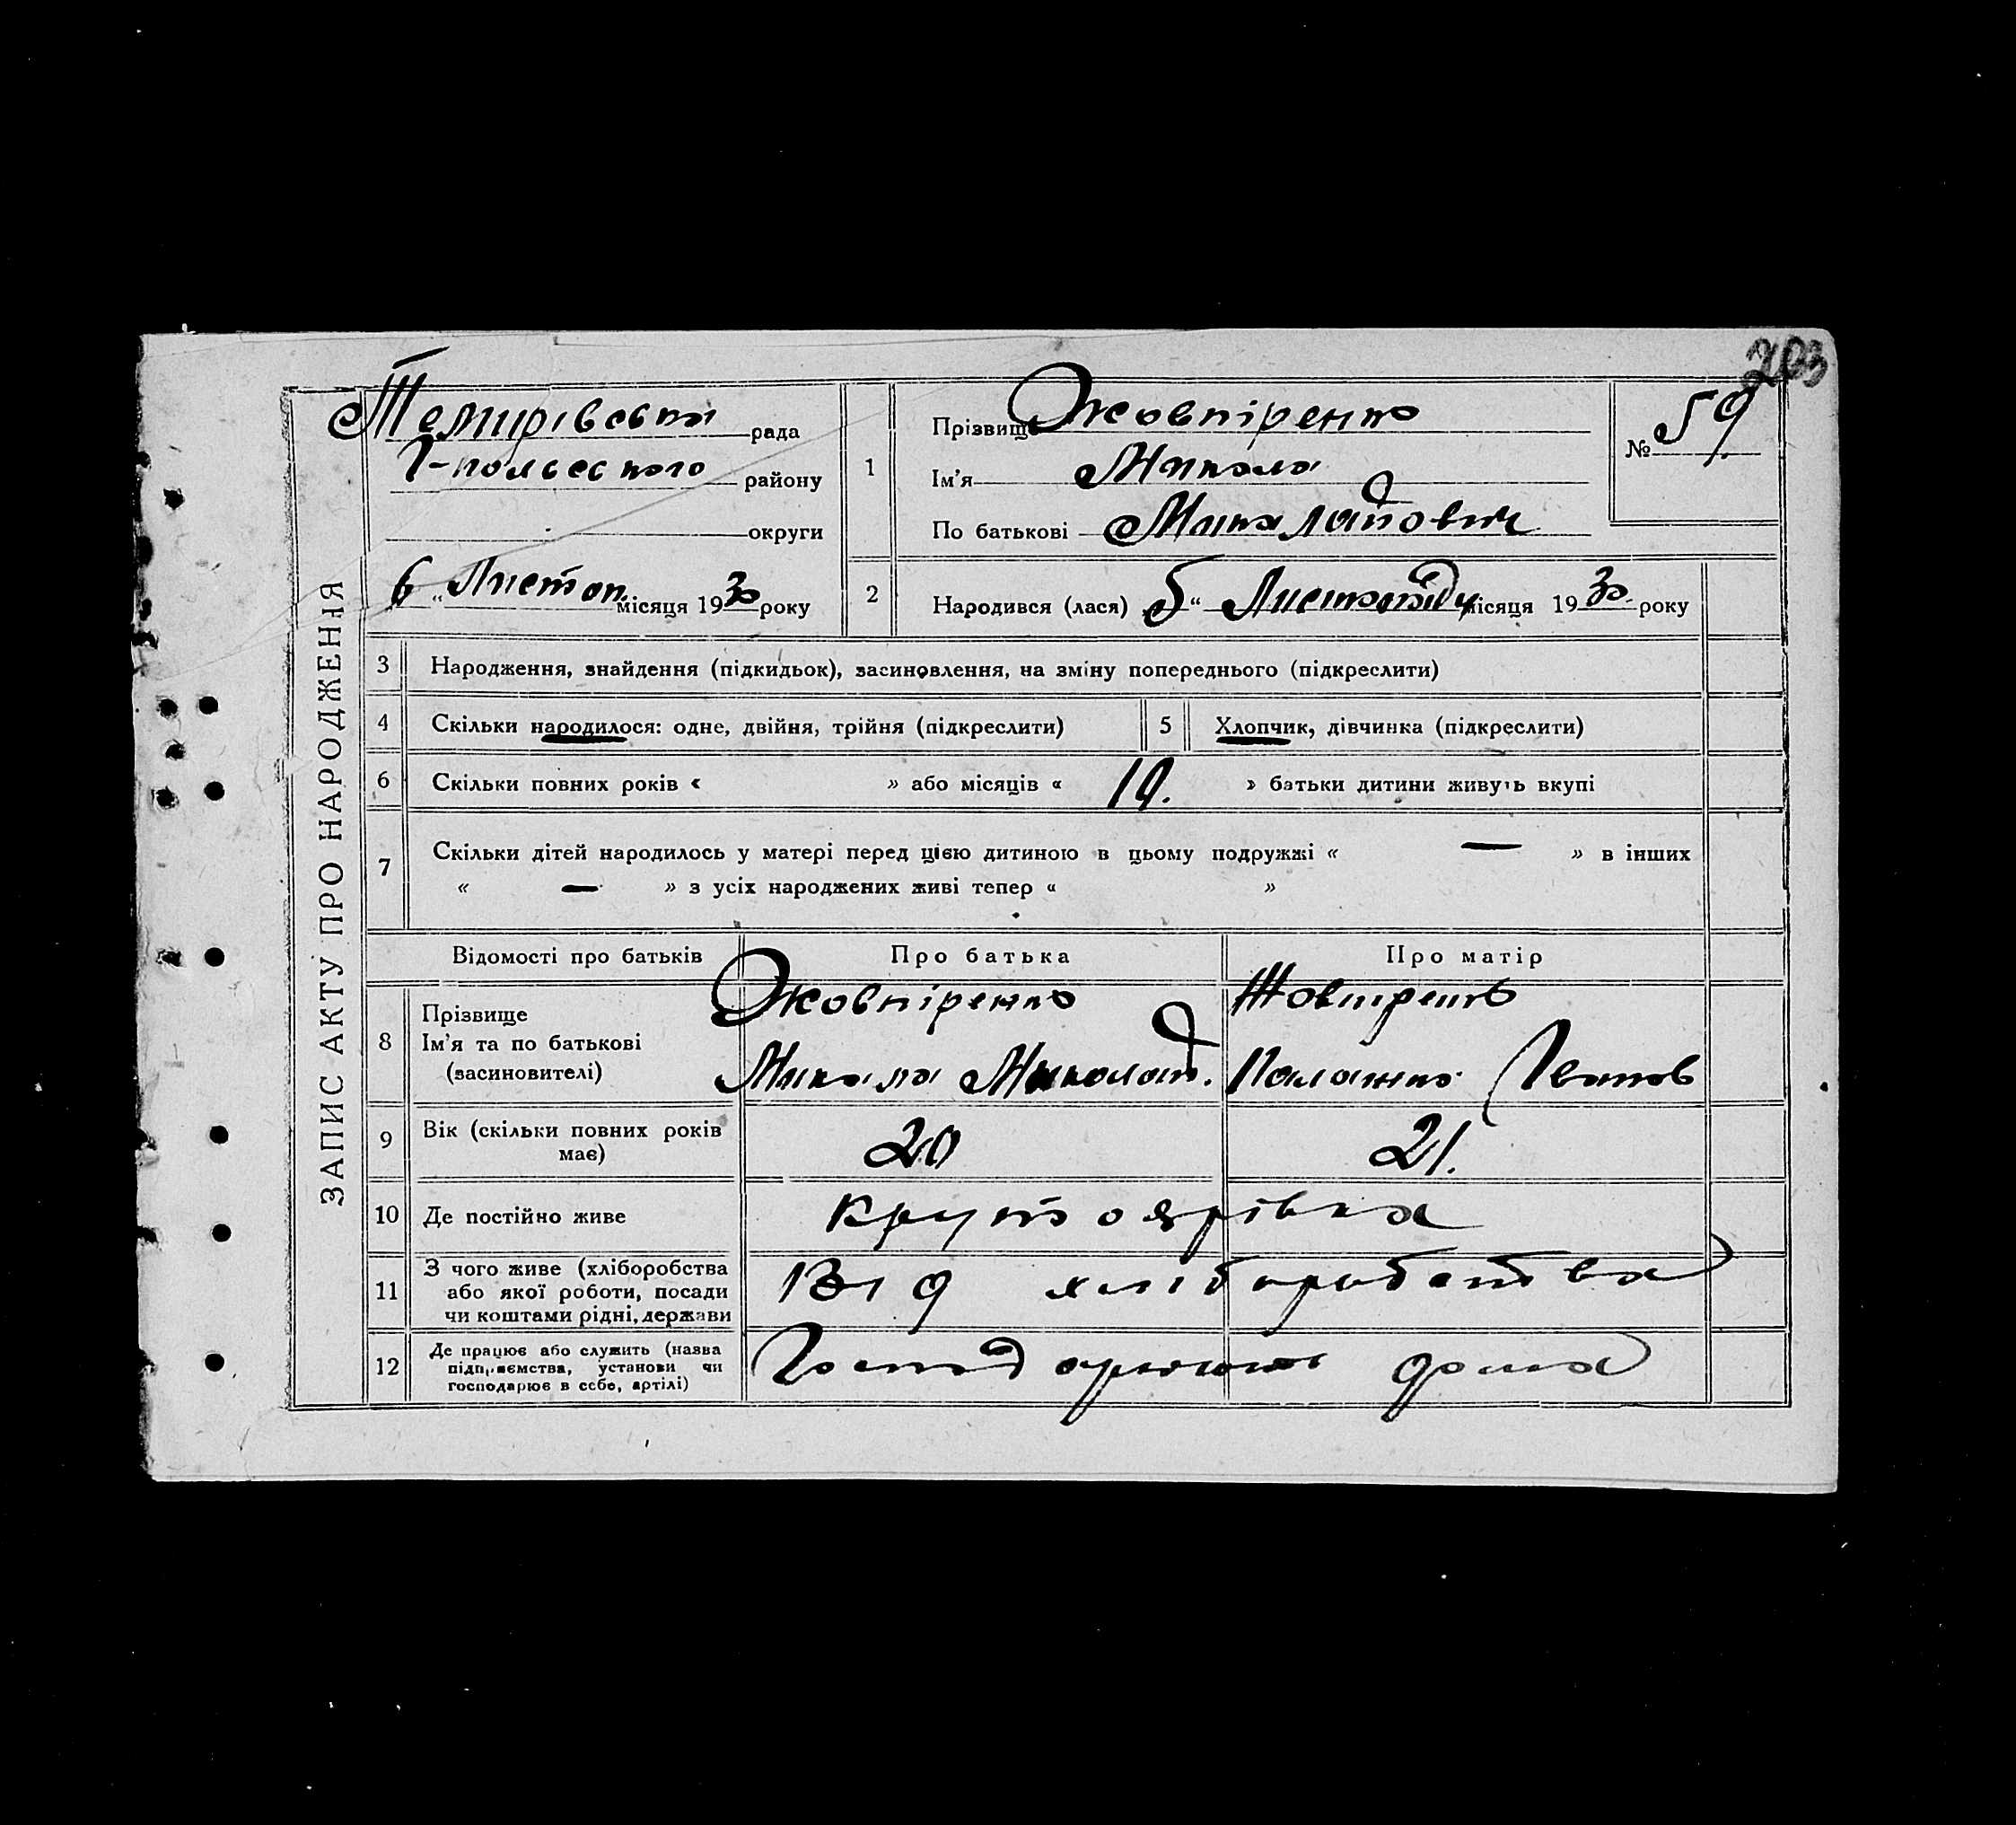 203
ЗАПИС АКТУ ПРО НАРОДЖЕННЯ
Темирівська рада
Г-польського району
округи
6 „ Листоп. місяця 1930 року
1
Прізвище Жовпіренко
Ім'я Микола
По батькові Миколайович
№ 59
2
Народився (лася) 5 “ Листопаду місяця 1930 року
3 Народження, знайдення (підкидьок), засиновлення, на зміну попереднього (підкреслити)
4 Скільки народилося: одне, двійня, трійня (підкреслити)
5 Хлопчик, дівчинка (підкреслити)
6 Скільки повних років « » або місяців « 10. » батьки дитини живуть вкупі
7 Скільки дітей народилось у матері перед цією дитиною в цьому подружжі « — » в інших
« — » з усіх народжених живі тепер « »
Відомості про батьків Про батька Про матір
8 Прізвище Жовпіренко
Ім'я та по батькові Микола Миколай. Палажка
(засновителі)
9 Вік (скільки повних років має) 20 21.
10 Де постійно живе Крутоярівка
11 З чого живе (хліборобства
або якої роботи, посади
чи коштами рідні, держави
Від хліборобства
12 Де працює або служить (назва
підприємства, установи чи
господарює в себе, артілі)
Господарюють дома